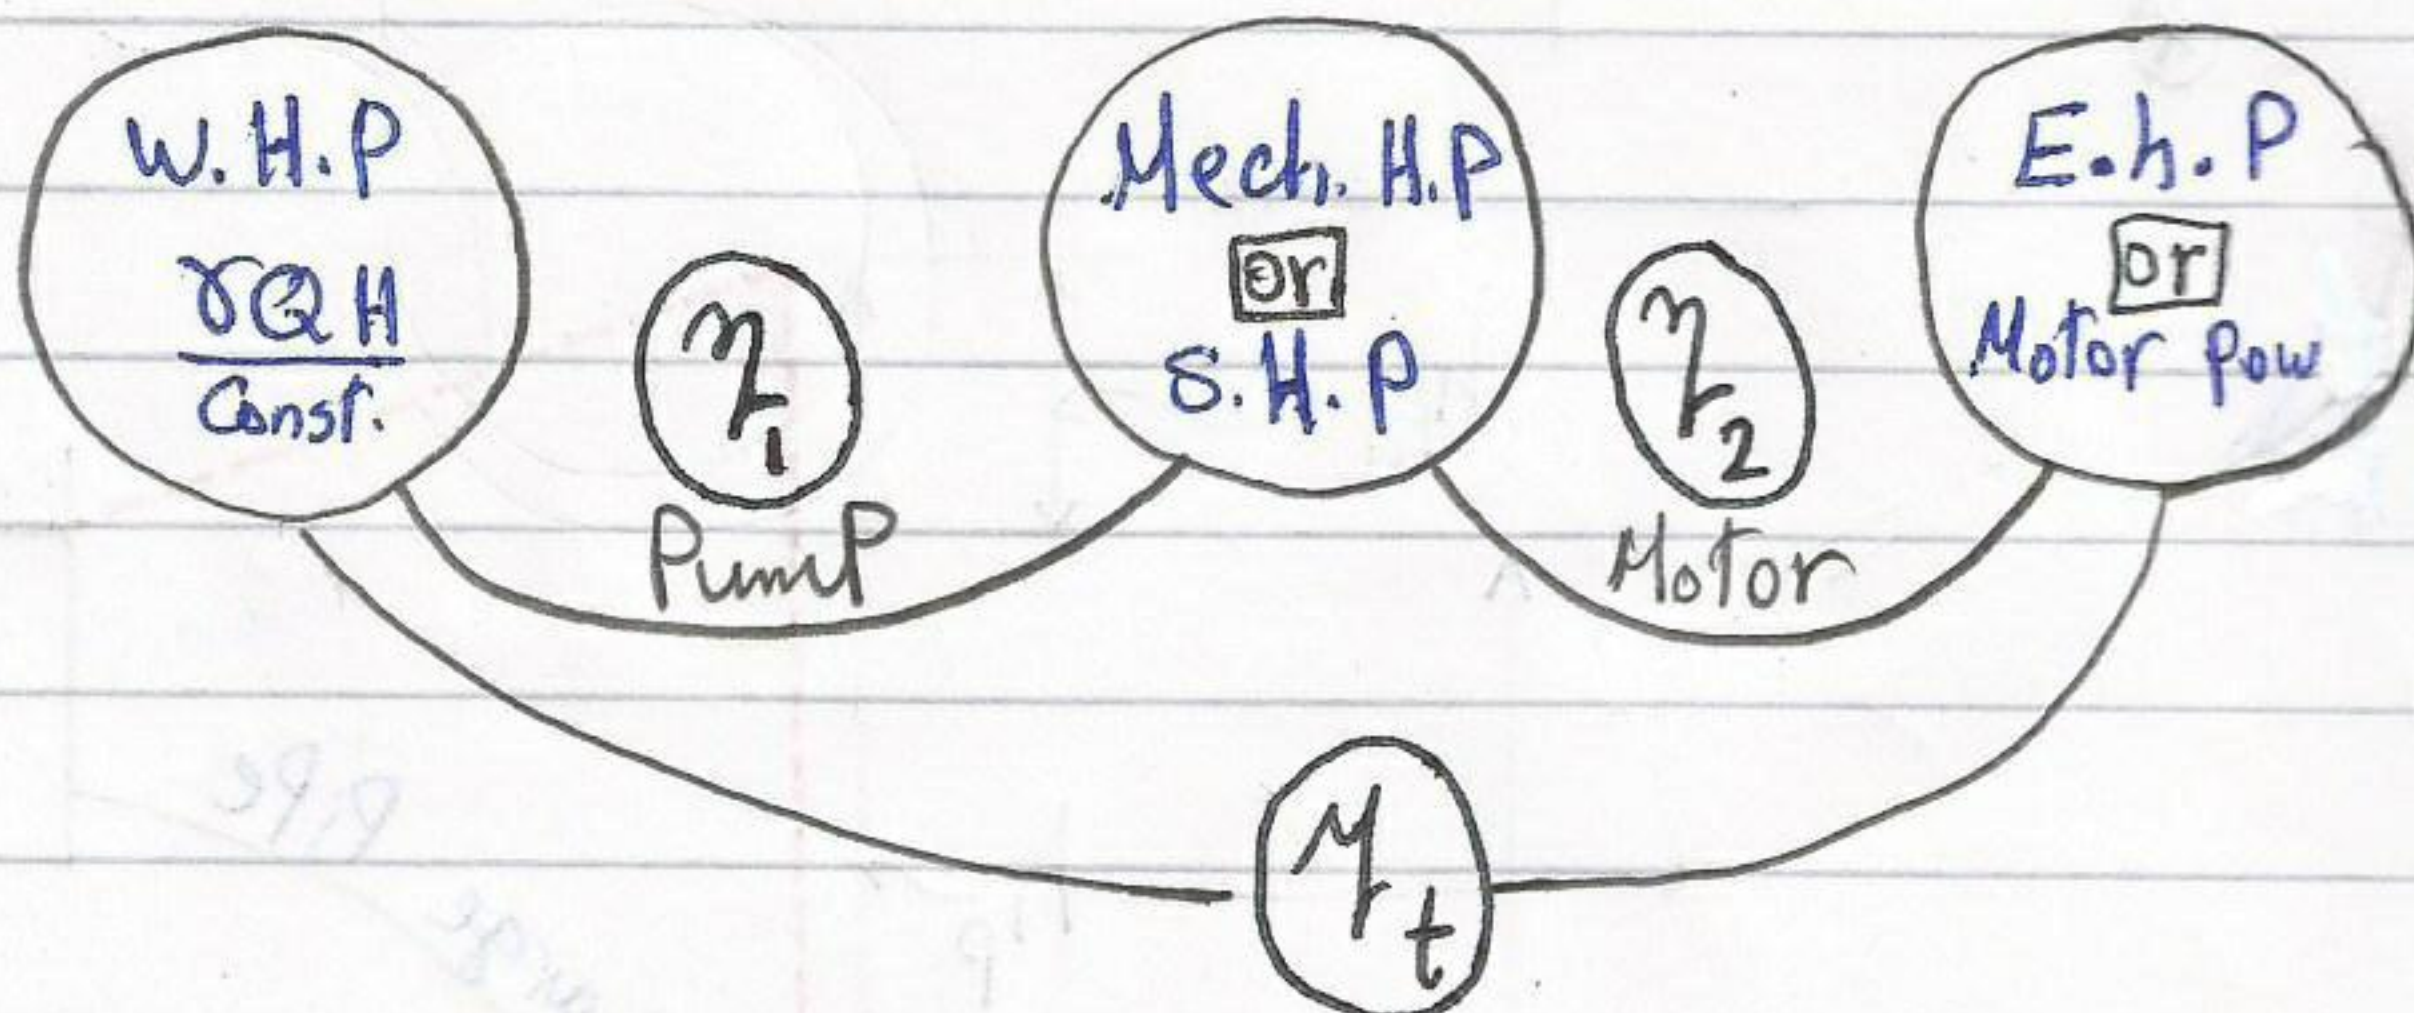 W.H.P
γQH
Const.
η1
Pump
Mech. H.P
or
S.H.P
η2
Motor
E.h.P
or
Motor Pow
ηt
Pipe